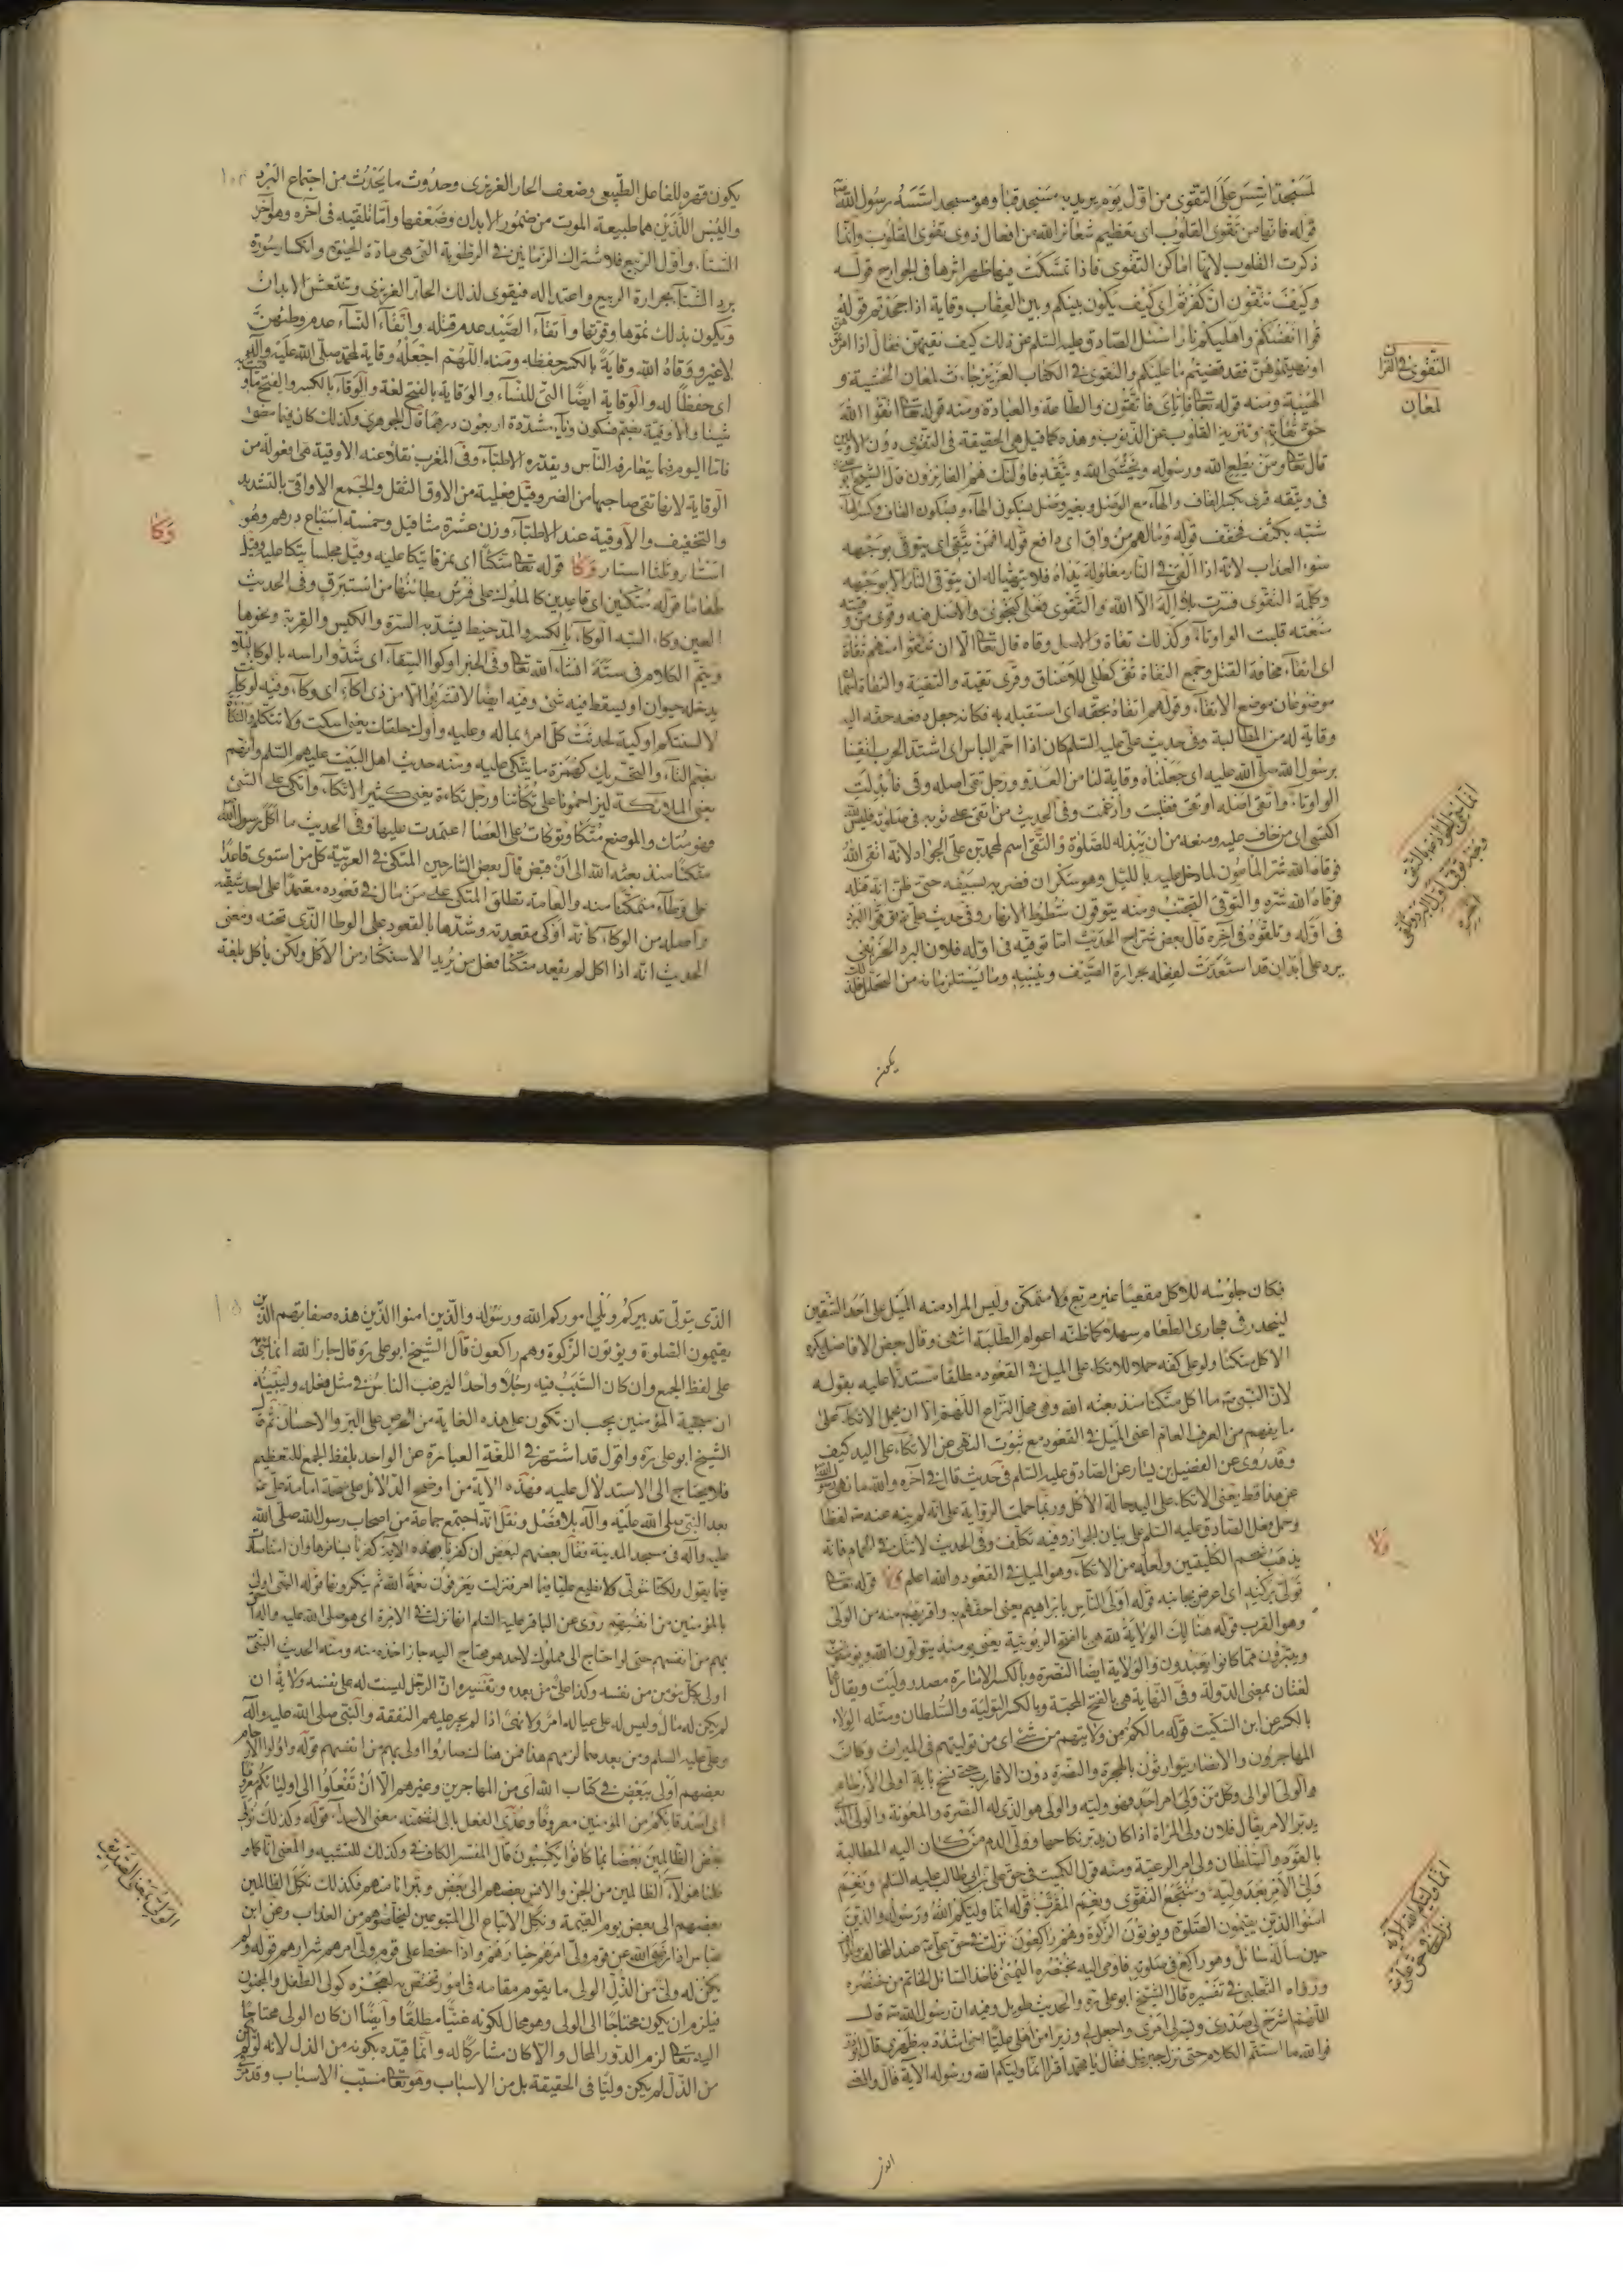 لمسجد اسس على التقوى من اول يوم يريد به مسجد قبا وهو مسجد اسسه رسول الله
قوله فانها من تقوى القلوب اى تعظيم شعائر الله من افعال ذوى تقوى القلوب وانما
ذكرت القلوب لانها اماكن التقوى فاذا تمكنت فيها ظهر اثرها فى الجوارح قوله
وكيف تتقون ان كفرتم اى كيف يكون بينكم وبين العقاب وقاية اذا جحدتم قوله
قوا انفسكم واهليكم نارا سئل الصادق عليه السلم عن ذلك كيف نقيهن فقال اذا امرتموهن
او نهيتموهن فقد قضيتم ما عليكم والتقوى فى الكتاب العزيز جاءت لمعان الخشية و
الهيبة ومنه قوله تعالى فاياى فاتقون والطاعة والعبادة ومنه قوله تعالى اتقوا الله
حق تقاته وتنزيه القلوب عن الذنوب وهذه كما قيل هى الحقيقة فى التقوى دون الاولين
قال تعالى ومن يطع الله ورسوله ويخشى الله ويتقه فاولئك هم الفائزون قال الشيخ ابو على
فى ويتقه قرى بكسر القاف والهاء مع الوصل وبغير وصل بسكون الهاء وبسكون القاف وكسر الهاء
شبه بكتف فخفف قوله وما لهم من واق اى دافع قوله افمن يتقى اى يتوقى بوجهه
سوء العذاب لانه اذا القى فى النار مغلولة يداه فلا يتهيا له ان يتوقى النار الا بوجهه
وكلمة التقوى فسرت بلا اله الا الله والتقوى فعلى كنجوى والاصل فيه وقوى من وقيته
منعته قلبت الواو تاء وكذلك تقاة والاصل وقاه قال تعالى الا ان تتقوا منهم تقاة
اى اتقاء مخافة القتل وجمع التقاة تقى كطلى للاعناق وقرى تقية والتقية والتقاة اسمان
موضوعان موضع الاتقاء وقولهم اتقاه بحقه اى استقبله به فكانه جعل دفعه حقه اليه
وقاية له من المطالبة وفى حديث على عليه السلم كان اذا احمر الباس اى اشتد الحرب اتقينا
برسول الله صلى الله عليه اى جعلناه وقاية لنا من العدو ورجل تقى اصله وقى فابدلت
الواو تاء واتقى اصله اوتقى فقلبت وادغمت وفى الحديث من اتقى على ثوبه فى صلوته فليس لله
اكتسى اى من خاف عليه ومنعه من ان يبذله للصلوة والتقى اسم لمحمد بن على الجواد لانه اتقى الله
فوقاه الله شر المأمون لما دخل عليه بالليل وهو سكران فضربه بسيفه حتى ظن انه قتله
فوقاه الله شره والتوقى التجنب ومنه يتوقون شطوط الانهار وفى حديث على توقوا البرد
فى اوله وتلقوه فى آخره قال بعض شراح الحديث اما توقيه فى اوله فلان البرد الخريفى
يرد على ابدان قد استعدت لفعله بحرارة الصيف ويبسه وما يستلزمانه من التحلل فلذلك
يكون
التقوى فى القرآن
لمعان
يكون قهره للفاعل الطبيعى وضعف الحار الغريزى وحدوث ما يحدث من اجتماع البرد
واليبس اللذين هما طبيعة الموت من ضمور الابدان وضعفها واما تلقيه فى آخره وهو آخر
الشتاء واول الربيع فلاشتراك الزمانين فى الرطوبة التى هى مادة الحيوة وانكسار سورة
برد الشتاء بحرارة الربيع واعتداله فيقوى لذلك الحار الغريزى وتنتعش الابدان
ويكون بذلك نموها وقوتها واتقاء الصيد عدم قتله واتقاء النساء عدم وطئهن
لا غير ووقاه الله وقاية بالكسر حفظه ومنه اللهم اجعله وقاية لمحمد صلى الله عليه واله
اى حفظا له والوقاية ايضا التى للنساء والوقاية بالفتح لغة والوقاء بالكسر والفتح ما وقيت به
شيئا والاوقية بضم فسكون وياء مشددة اربعون درهما قال الجوهرى وكذلك كان فيما مضى
فاما اليوم فيما يتعارفه الناس ويقدره الاطباء وفى المغرب نقلا عنه الاوقية هى افعولة من
الوقاية لانها تقى صاحبها من الضر وقيل فعلية من الاوق الثقل والجمع الاواقى بالتشديد
والتخفيف والاوقية عند الاطباء وزن عشرة مثاقيل وخمسة اسباع درهم وهو
استار وثلثا استار وكا قوله تعالى متكئا اى نمرقا يتكا عليه وقيل مجلسا يتكا عليه وقيل
طعاما قوله متكئين اى قاعدين كالملوك على فرش بطائنها من استبرق وفى الحديث
العين وكاء السه الوكاء بالكسر والمد خيط يشد به السرة والكيس والقربة ونحوها
ويتم الكلام فى سته انشاء الله تعالى وفى الخبر اوكوا السقاء اى شدوا راسه بالوكاء لئلا
يدخله حيوان او يسقط فيه شئ وفيه ايضا لا تشربوا الا من ذى اكاء اى وكاء وفيه لو كان
لالسنتكم اوكية لحدثت كل امرئ بما له وعليه واوك حلقك يعنى اسكت ولا تتكلم والتكأة
بضم التاء والتحريك كهمزة ما يتكى عليه ومنه حديث اهل البيت عليهم السلم وانهم
يعنى الملائكة ليزاحمونا على تكأتنا ورجل تكاءة يعنى كثير الاتكاء واتكى على الشئ
فهو متك والموضع متكا وتوكات على العصا اعتمدت عليها وفى الحديث ما اكل رسول الله
متكئا منذ بعثه الله الى ان قبض قال بعض الشارحين المتكى فى العربية كل من استوى قاعدا
على وطاء متمكنا منه والعامة تطلق المتكى على من مال فى قعوده معتمدا على احد شقيه
واصله من الوكاء كانه اوكى مقعدته وشدها بالقعود على الوطا الذى تحته ومعنى
الحديث انه اذا اكل لم يقعد متكئا فعل من يريد الاستكثار من الاكل ولكن ياكل بلغة
وكا
فكان جلوسه للاكل مقعيا غير مربع ولا متمكن وليس المراد منه الميل على احد الشقين
لينحدر فى مجارى الطعام سهلا كما ظنه اعوام الطلبة انتهى وقال بعض الافاضل يكره
الاكل متكئا ولو على كفه حملا للاتكاء على الميل فى القعود مطلقا مستدلا عليه بقوله
لان النبى ما اكل متكئا منذ بعثه الله وفى محل النزاع اللهم الا ان يحمل الاتكاء على
ما يفهم من العرف العام اعنى الميل فى القعود مع ثبوت النهى عن الاتكاء على اليد كيف
وقد روى عن الفضيل بن يسار عن الصادق عليه السلم فى حديث قال فى آخره والله ما نهى رسول الله
عن هذا قط يعنى الاتكاء على اليد حالة الاكل وربما حملت الرواية على انه لم ينه عنه لفظا
وحمل فعل الصادق عليه السلم على بيان الجواز وفيه تكلف وفى الحديث لا تتك فى الحمام فانه
يذهب شحم الكليتين ولعله من الاتكاء وهو الميل فى القعود والله اعلم ولا قوله تعالى
تولى بركنه اى اعرض بجانبه قوله اولى الناس بابراهيم يعنى احقهم به واقربهم منه من الولى
وهو القرب قوله هنالك الولاية لله هى بالفتح الربوبية يعنى يومئذ يتولون الله ويؤمنون به
ويتبرؤن مما كانوا يعبدون والولاية ايضا النصرة وبالكسر الامارة مصدر وليت ويقال هما
لغتان بمعنى الدولة وفى النهاية هى بالفتح المحبة وبالكسر التولية والسلطان ومثله الولاء
بالكسر عن ابن السكيت قوله ما لكم من ولايتهم من شئ اى من توليتهم فى الميراث وكان
المهاجرون والانصار يتوارثون بالهجرة والنصرة دون الاقارب حتى نسخ باية اولى الارحام
والولى الوالى وكل من ولى امر احد فهو وليه والولى هو الذى له النصرة والمعونة والولى الذى
يدبر الامر يقال فلان ولى المراة اذا كان يدبر نكاحها وولى الدم من كان اليه المطالبة
بالقود والسلطان ولى امر الرعية ومنه قول الكميت فى حق على بن ابى طالب عليه السلم ونعم
ولى الامر بعد وليه ومنتجع التقوى ونعم المقرب قوله انما وليكم الله ورسوله والذين
امنوا الذين يقيمون الصلوة ويؤتون الزكوة وهم راكعون نزلت فى حق على عند المخالف والمؤالف
حين ساله سائل وهو راكع فى صلوته فاومى اليه بخنصره اليمنى فاخذ السائل الخاتم من خنصره
ورواه الثعلبى فى تفسيره قال الشيخ ابو على والحديث طويل وفيه ان رسول الله قال
اللهم اشرح لى صدرى ويسر لى امرى واجعل لى وزيرا من اهلى عليا اخى اشدد به ظهرى قال ابوذر
فوالله ما استتم الكلام حتى نزل جبرئيل فقال يا محمد اقرا انما وليكم الله ورسوله الآية قال والمعنى
الذى
ولا
الذى يتولى تدبيركم ويلى اموركم الله ورسوله والذين امنوا الذين هذه صفاتهم الذين
يقيمون الصلوة ويؤتون الزكوة وهم راكعون قال الشيخ ابو على ره قال جار الله انما جئ
على لفظ الجمع وان كان السبب فيه رجلا واحدا ليرغب الناس فى مثل فعله وليبينه
ان سجية المؤمنين يجب ان تكون على هذه الغاية من الحرص على البر والاحسان ثم قال
الشيخ ابو على ره واقول قد اشتهر فى اللغة العبارة عن الواحد بلفظ الجمع للتعظيم
فلا يحتاج الى الاستدلال عليه فهذه الاية من اوضح الدلائل على صحة امامة على
بعد النبى صلى الله عليه وآله بلا فصل ونقل انه اجتمع جماعة من اصحاب رسول الله صلى الله
عليه وآله فى مسجد المدينة فقال بعضهم لبعض ان كفرنا بهذه الاية كفرنا بسائرها وان امنا صدقنا
فيما يقول ولكنا نتولى ولا نطيع عليا فيما امر فنزلت يعرفون نعمة الله ثم ينكرونها قوله النبى اولى
بالمؤمنين من انفسهم روى عن الباقر عليه السلم انها نزلت فى الامرة اى هو صلى الله عليه وآله
بهم من انفسهم حتى لو احتاج الى مملوك لاحد هو محتاج اليه جاز اخذه منه ومنه الحديث النبى
اولى بكل مؤمن من نفسه وكذا على من بعده وتفسيره ان الرجل ليست له على نفسه ولاية ان
لم يكن له مال وليس له على عياله امر ولا نهى اذا لم يجر عليهم النفقة والنبى صلى الله عليه وآله
وعلى عليه السلم ومن بعدهما لزمهم هذا فمن هنا لك صاروا اولى بهم من انفسهم قوله واولوا الارحام
بعضهم اولى ببعض فى كتاب الله اى من المهاجرين وغيرهم الا ان تفعلوا الى اوليائكم معروفا
اى اصدقائكم من المؤمنين معروفا وعدى الفعل بالى لتضمنه معنى الاسداء قوله وكذلك نولى
بعض الظالمين بعضا بما كانوا يكسبون قال المفسر الكاف فى وكذلك للتشبيه والمعنى انا كما
بعضهم الى بعض يوم القيمة ونكل الاتباع الى المتبوعين ليخلصوهم من العذاب وعن ابن
عباس اذا رضى الله عن قوم ولى امرهم خيارهم واذا سخط على قوم ولى امرهم شرارهم قوله ولم
يكن له ولى من الذل الولى ما يقوم مقامه فى امور تختص به لعجزه كولى الطفل والمجنون
فيلزم ان يكون محتاجا الى الولى وهو محال لكونه غنيا مطلقا وايضا ان كان الولى محتاجا
اليه تعالى لزم الدور المحال والا كان مشاركا له وانما قيده بكونه من الذل لانه لو لم يكن
من الذل لم يكن وليا فى الحقيقة بل من الاسباب وهو تعالى مسبب الاسباب وقد مر